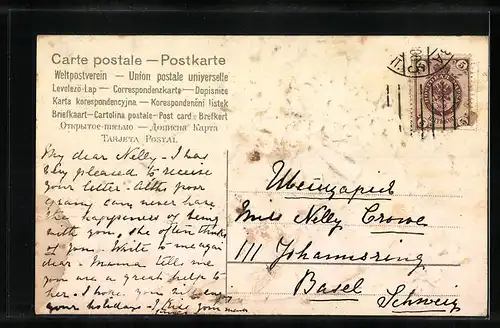 Carte postale — Postkarte
Weltpostverein — Union postale universelle
Levelező-Lap — Correspondenzkarte — Dopisnice
Karta korespondencyjna — Korespondenční lístek
Briefkaart — Cartolina postale — Post card — Brefkort
Открытое письмо — Дописна Карта
TARJETA POSTAL
My dear Nelly — I was
very pleased to receive
your letter. Altho poor
Granny can never have
the happiness of being
with you, she often thinks
of you. Write to me again
dear — Mama tells me
you are a great help to
her. I hope you
your holidays — I
Швейцарія
Miss Nelly Crowe
111 Johannsring
Basel
Schweiz
5